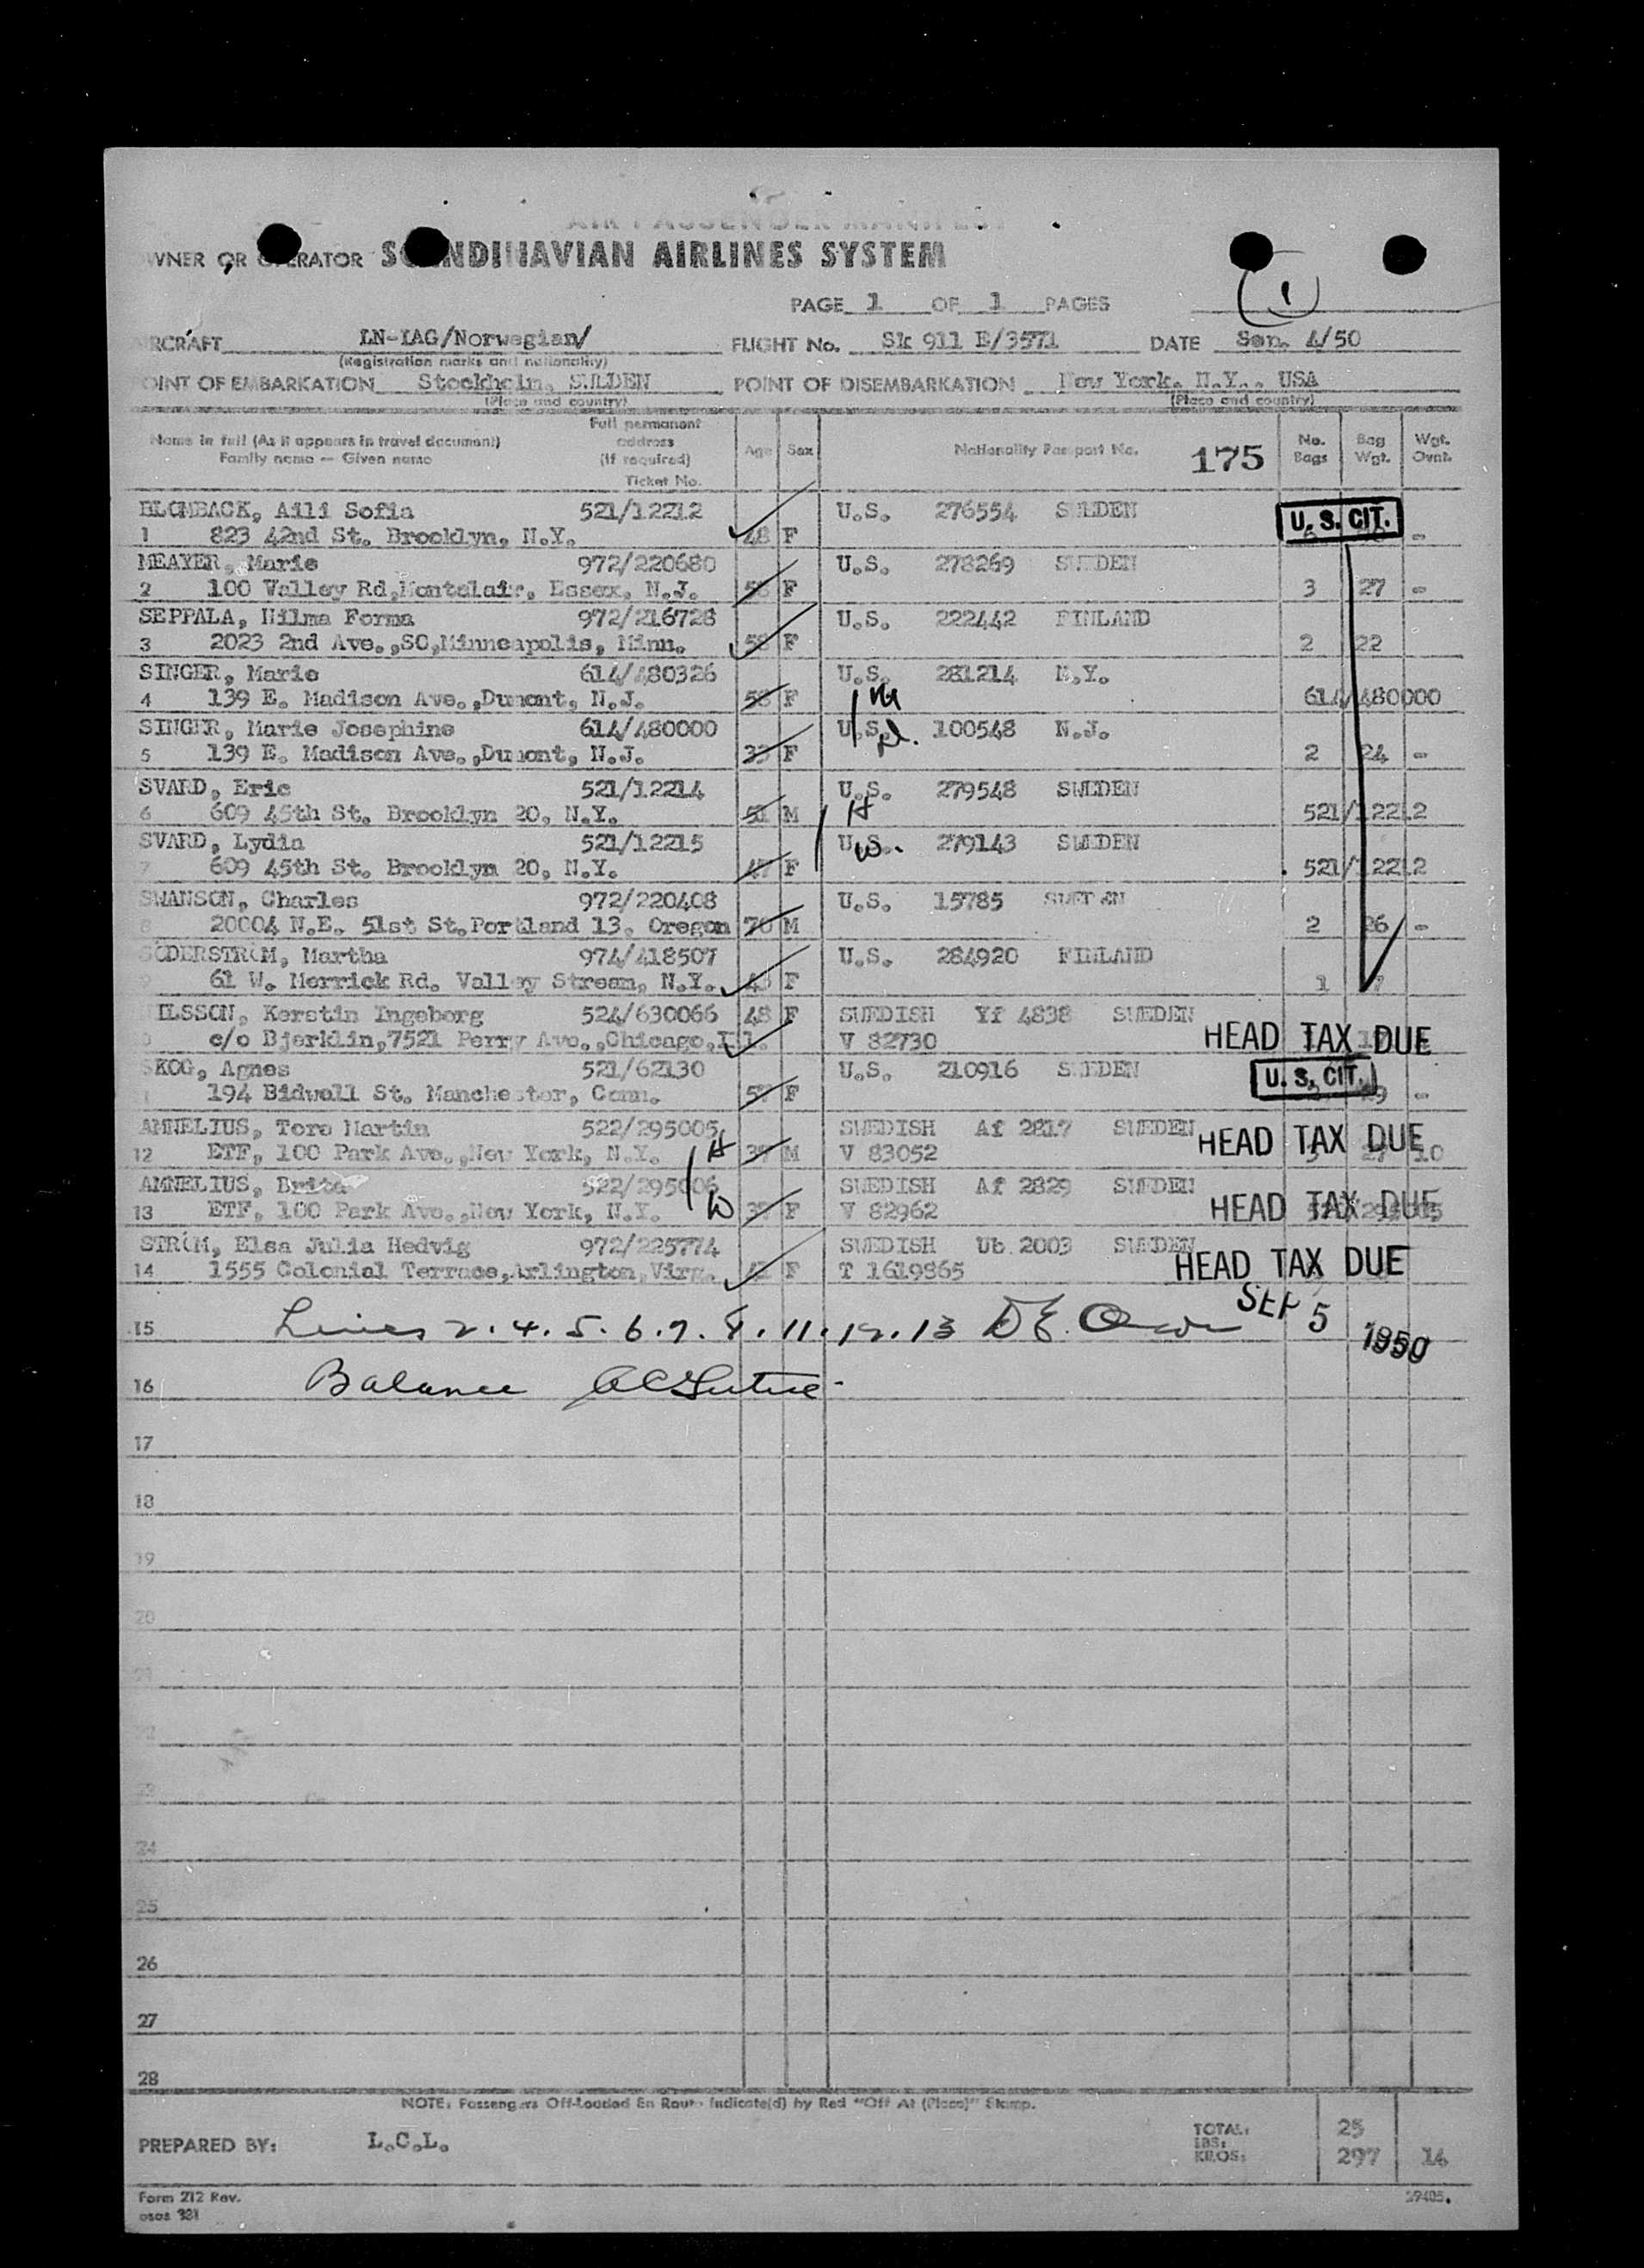 AIR PASSENGER MANIFEST
WNER OR RATOR SC NDINAVIAN AIRLINES SYSTEM
PAGE 1 OF 1 PAGES
1
RCRAFT LN-IAG/Norwegian/ FLIGHT No. Sk 911 E/3571 DATE Sep. 4/50
(Registration marks and nationality)
OINT OF EMBARKATION Stockholm, SWEDEN POINT OF DISEMBARKATION New York, N.Y., USA
(Place and country) (Place and country)
Name in full (As it appears in travel document) Family name — Given name Full permanent address (If required) Ticket No. Age Sex Nationality Passport No. 175 No. Bags Bag Wgt. Wgt. Ovnt.
BLOMBACK, Aili Sofia 521/12212 U.S. 276554 SWEDEN U. S. CIT.
1 823 42nd St. Brooklyn, N.Y. 48 F -
MEAYER, Marie 972/220680 U.S. 278269 SWEDEN
2 100 Valley Rd,Montclair, Essex, N.J. F 3 27 -
SEPPALA, Hilma Forma 972/216728 U.S. 222442 FINLAND
3 2023 2nd Ave.,SO,Minneapolis, Minn. F 2 22
SINGER, Marie 614/480326 U.S. 281214 N.Y.
4 139 E. Madison Ave.,Dumont, N.J. F M 614/480000
SINGER, Marie Josephine 614/480000 U.S. 100548 N.J.
5 139 E. Madison Ave.,Dumont, N.J. 33 F D. 2 24 -
SVARD, Eric 521/12214 U.S. 279548 SWEDEN
6 609 45th St. Brooklyn 20, N.Y. 51 M H 521/12212
SVARD, Lydia 521/12215 U.S. 279143 SWEDEN
7 609 45th St. Brooklyn 20, N.Y. 47 F W. 521/12212
SWANSON, Charles 972/220408 U.S. 15785 SWEDEN
8 20004 N.E. 51st St.Portland 13, Oregon 70 M 2 26 -
SODERSTROM, Martha 974/418507 U.S. 284920 FINLAND
61 W. Merrick Rd. Valley Stream, N.Y. F 1 7
ILSSON, Kerstin Ingeborg 524/630066 48 F SWEDISH Yf 4838 SWEDEN
c/o Bjerklin,7521 Perry Ave.,Chicago,Ill. V 82730 HEAD TAX DUE
SKOG, Agnes 521/62130 U.S. 210916 SWEDEN U. S. CIT.
194 Bidwell St. Manchester, Conn. 57 F -
AMNELIUS, Tore Martin 522/295005 SWEDISH Af 2817 SWEDEN HEAD TAX DUE
12 ETF, 100 Park Ave.,New York, N.Y. H M V 83052 10
AMNELIUS, Brita 522/295006 SWEDISH Af 2829 SWEDEN
13 ETF, 100 Park Ave.,New York, N.Y. W F V 82962 HEAD TAX DUE
STROM, Elsa Julia Hedvig 972/225774 SWEDISH Ub 2003 SWEDEN
14 1555 Colonial Terrace,Arlington,Virg. F T 1619865 HEAD TAX DUE
15 Lines 2. 4. 5. 6. 7. 8. 11. 12. 13 SEP 5 1950
16 Balance
17
18
19
20
21
22
23
24
25
26
27
28
NOTE: Passengers Off-Loaded En Route Indicate(d) by Red "Off At (Place)" Stamp.
PREPARED BY: L.C.L. TOTAL: 25
LBS:
KILOS: 297 14
Form 212 Rev. 29405.
osas 321